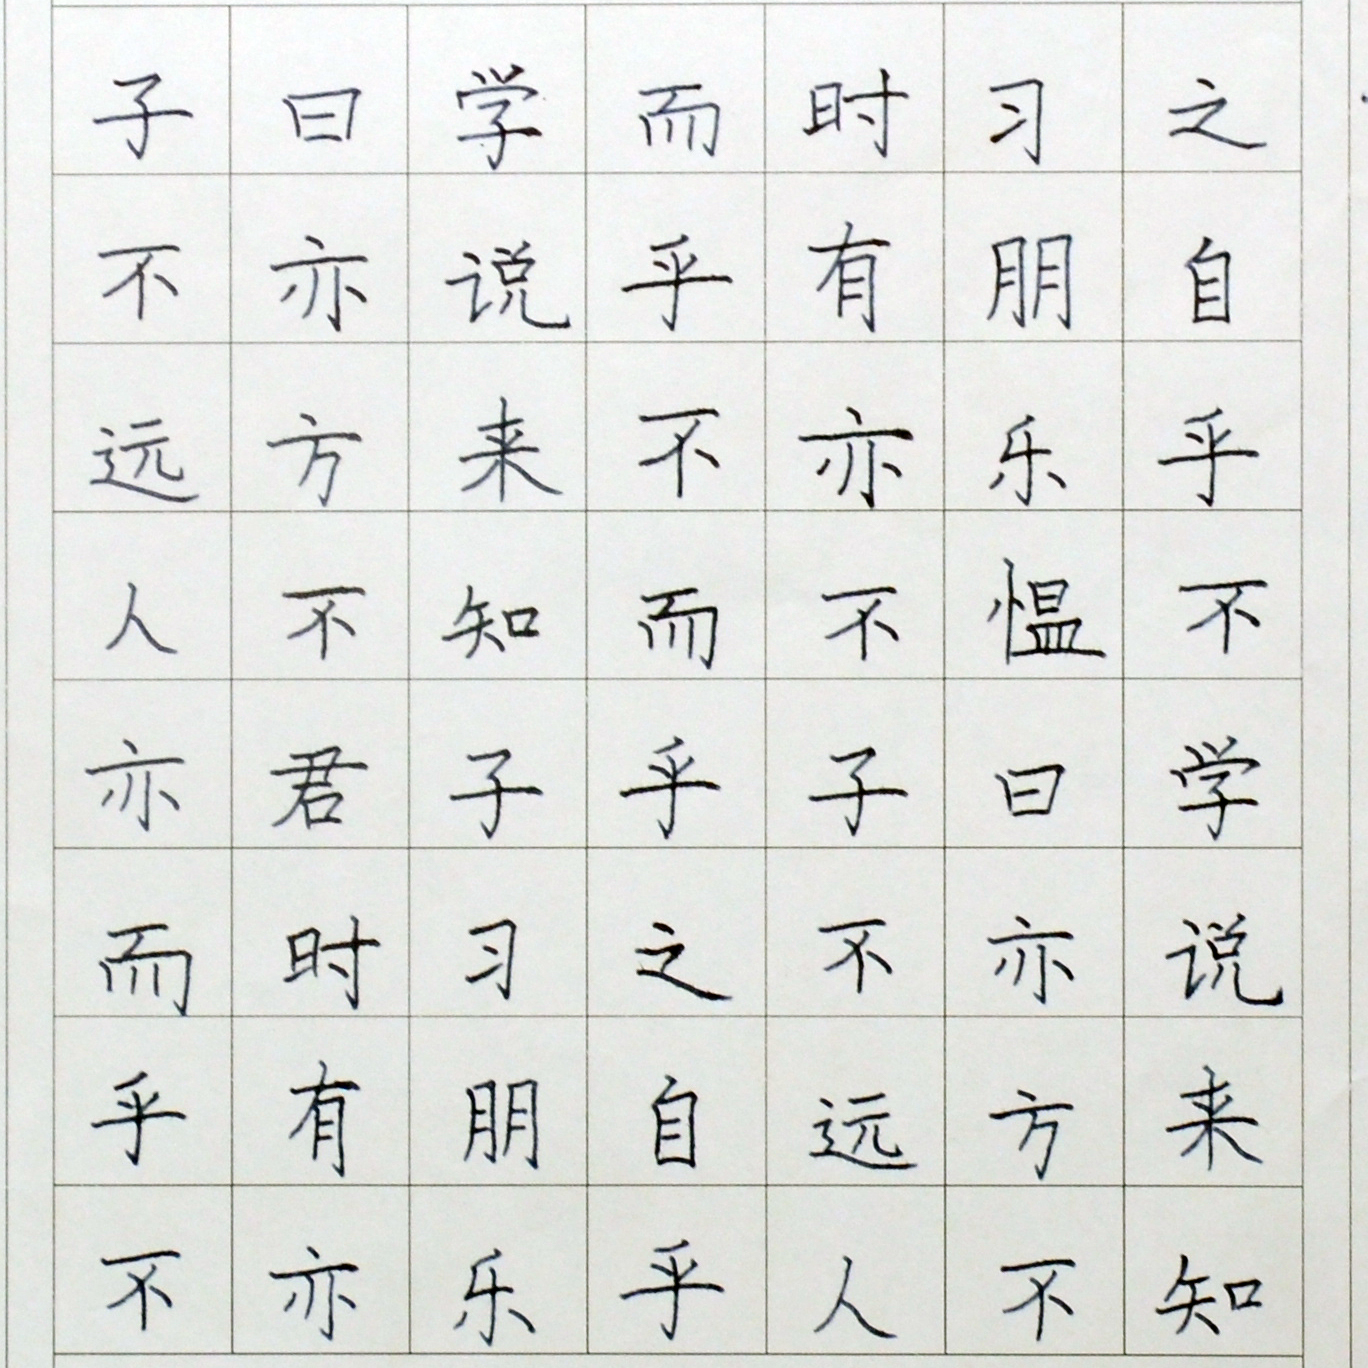 子曰学而时习之
不亦说乎有朋自
远方来不亦乐乎
人不知而不愠不
亦君子乎子曰学
而时习之不亦说
乎有朋自远方来
不亦乐乎人不知